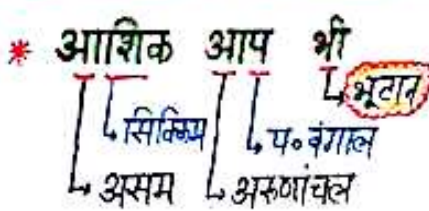 * आशिक आप भी
भूटान
सिक्किम प० बंगाल
असम अरुणांचल